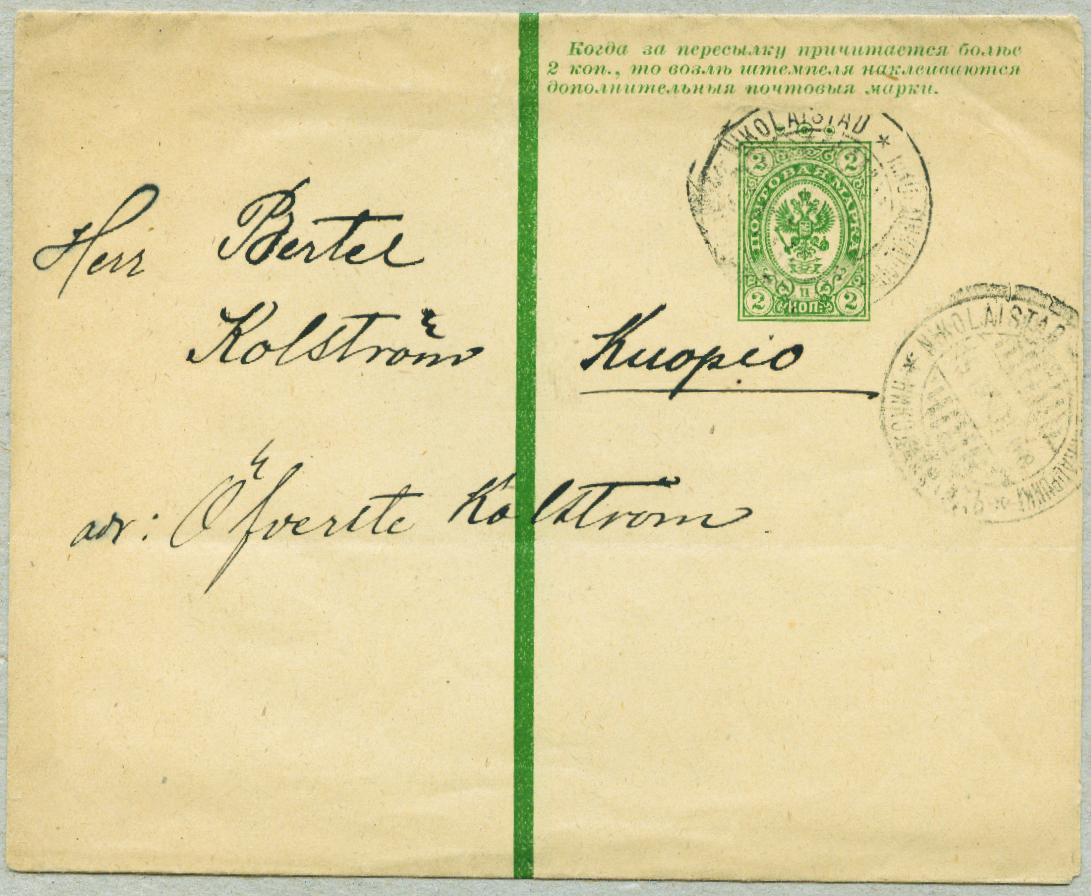 Когда за пересылку причитается болѣе
2 коп., то возлѣ штемпеля наклеиваются
дополнительныя почтовыя марки.
NIKOLAISTAD *
2 2
ПОЧТОВАЯ МАРКА
2 КОП. 2
Herr Bertel
Kolström Kuopio
* NIKOLAISTAD
adr: Öfverste Kolström